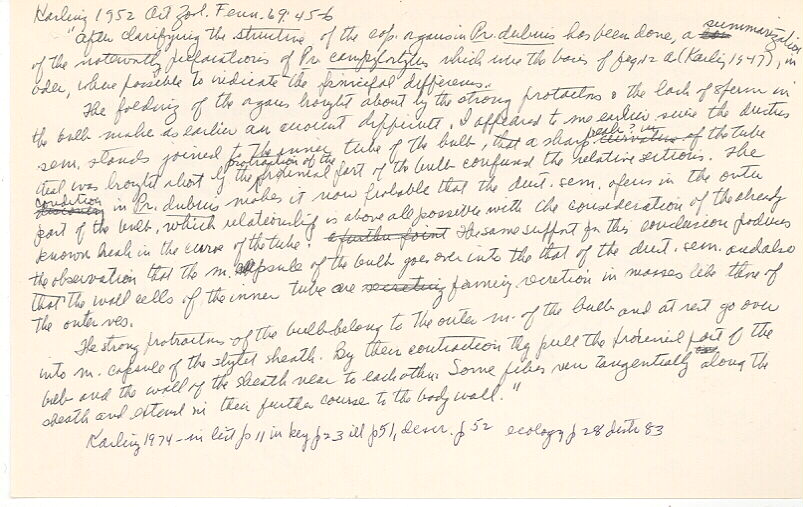 Karling 1952 Act Zool. Fenn. 69: 45-6
"After clarifying the structure of the cop. organs in Pr. dubius has been done, a summarization
of the noteworthy preparations of Pr campylostylus which were the basis of fig. 12 a (Karling 1947), in
order, where possible to indicate the principal differences.
The folding of the organs brought about by the strong protractors & the lack of sperm in
the bulb make as earlier an ancient difficult. I appeared to me earlier sure the ductus
sem. stands joined to the inner tube of the bulb, that a sharp of the tube
that was brought about by the protraction of the proximal part of the bulb confused the relative sections. The
condition in Pr. dubius makes it now probable that the duct. sem. opens in the outer
part of the bulb, which relationship is above all possible with the consideration of the already
known break in the curve of the tube. a further point The same support for this conclusion produces
the observation that the m. capsule of the bulb goes over into the that of the duct. sem. and also
that the wall cells of the inner tube are secreting farming secretion in masses like those of
the outer ves.
The strong protractors of the bulb belong to the outer m. of the bulb and at rest go over
into m. capsule of the stylet sheath. By their contraction they pull the proximal part of the
bulb and the wall of the sheath near to each other. Some fibers run tangentially along the
sheath and extend in their further course to the body wall."
Karling 1974 - in list p 11 in key p 23 ill p 51, descr. p 52 ecology p 28 distr 83